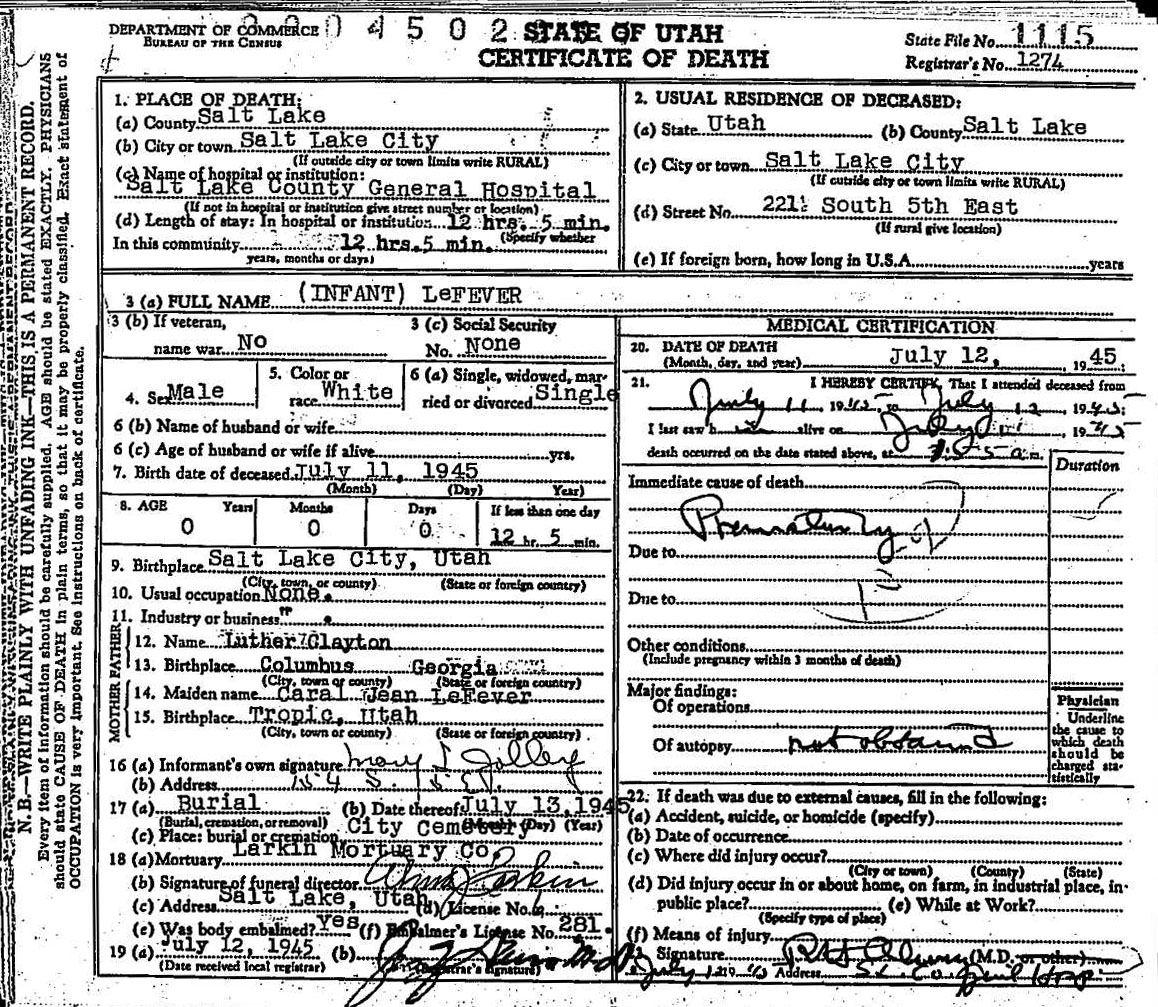 DEPARTMENT OF COMMERCE
BUREAU OF THE CENSUS
04502
STATE OF UTAH
CERTIFICATE OF DEATH
State File No. 1115
Registrar's No. 1274
N. B.—WRITE PLAINLY WITH UNFADING INK—THIS IS A PERMANENT RECORD.
Every item of information should be carefully supplied. AGE should be stated EXACTLY. PHYSICIANS
should state CAUSE OF DEATH in plain terms, so that it may be properly classified. Exact statement of
OCCUPATION is very important. See instructions on back of certificate.
1. PLACE OF DEATH:
(a) County Salt Lake
(b) City or town Salt Lake City
(If outside city or town limits write RURAL)
(c) Name of hospital or institution:
Salt Lake County General Hospital
(If not in hospital or institution give street number or location)
(d) Length of stay: In hospital or institution 12 hrs. 5 min.
(Specify whether
In this community 12 hrs. 5 min.
years, months or days)
2. USUAL RESIDENCE OF DECEASED:
(a) State Utah (b) County Salt Lake
(c) City or town Salt Lake City
(If outside city or town limits write RURAL)
(d) Street No. 221½ South 5th East
(If rural give location)
(e) If foreign born, how long in U.S.A. years
3 (a) FULL NAME (INFANT) LeFEVER
3 (b) If veteran,
name war No
3 (c) Social Security
No. None
4. Sex Male
5. Color or
race White
6 (a) Single, widowed, mar-
ried or divorced Single
6 (b) Name of husband or wife
6 (c) Age of husband or wife if alive yrs.
7. Birth date of deceased July 11, 1945
(Month) (Day) Year)
8. AGE Years Months Days If less than one day
0 0 0 12 hr. 5 min.
9. Birthplace Salt Lake City, Utah
(City, town, or county) (State or foreign country)
10. Usual occupation None.
11. Industry or business " .
FATHER
12. Name Luther Clayton
13. Birthplace Columbus Georgia
(City, town or county) (State or foreign country)
MOTHER
14. Maiden name Caral Jean LeFever
15. Birthplace Tropic, Utah
(City, town or county) (State or foreign country)
16 (a) Informant's own signature Mary L Jolley
(b) Address
17 (a) Burial (b) Date thereof July 13, 1945
(Burial, cremation, or removal) (Month) (Day) (Year)
(c) Place: burial or cremation City Cemetery
18 (a) Mortuary Larkin Mortuary Co.
(b) Signature of funeral director Alma Larkin
(c) Address Salt Lake, Utah (d) License No.
(e) Was body embalmed? yes (f) Embalmer's License No. 281.
19 (a) July 12, 1945 (b)
(Date received local registrar) (Registrar's signature)
MEDICAL CERTIFICATION
20. DATE OF DEATH
(Month, day, and year) July 12, 1945
21. I HEREBY CERTIFY, That I attended deceased from
July 11 1945 to July 12 1945
I last saw h im alive on July 11 1945
death occurred on the date stated above, at a.m.
Duration
Immediate cause of death
Prematurity
Due to
Due to
Other conditions
(Include pregnancy within 3 months of death)
Major findings:
Of operations
Of autopsy not obtained
Physician
Underline
the cause to
which death
should be
charged sta-
tistically
22. If death was due to external causes, fill in the following:
(a) Accident, suicide, or homicide (specify)
(b) Date of occurrence
(c) Where did injury occur?
(City or town) (County) (State)
(d) Did injury occur in or about home, on farm, in industrial place, in
public place? (e) While at Work?
(Specify type of place)
(f) Means of injury
Signature (M.D. or other)
July 12 Address S. L. Co. Genl Hosp.